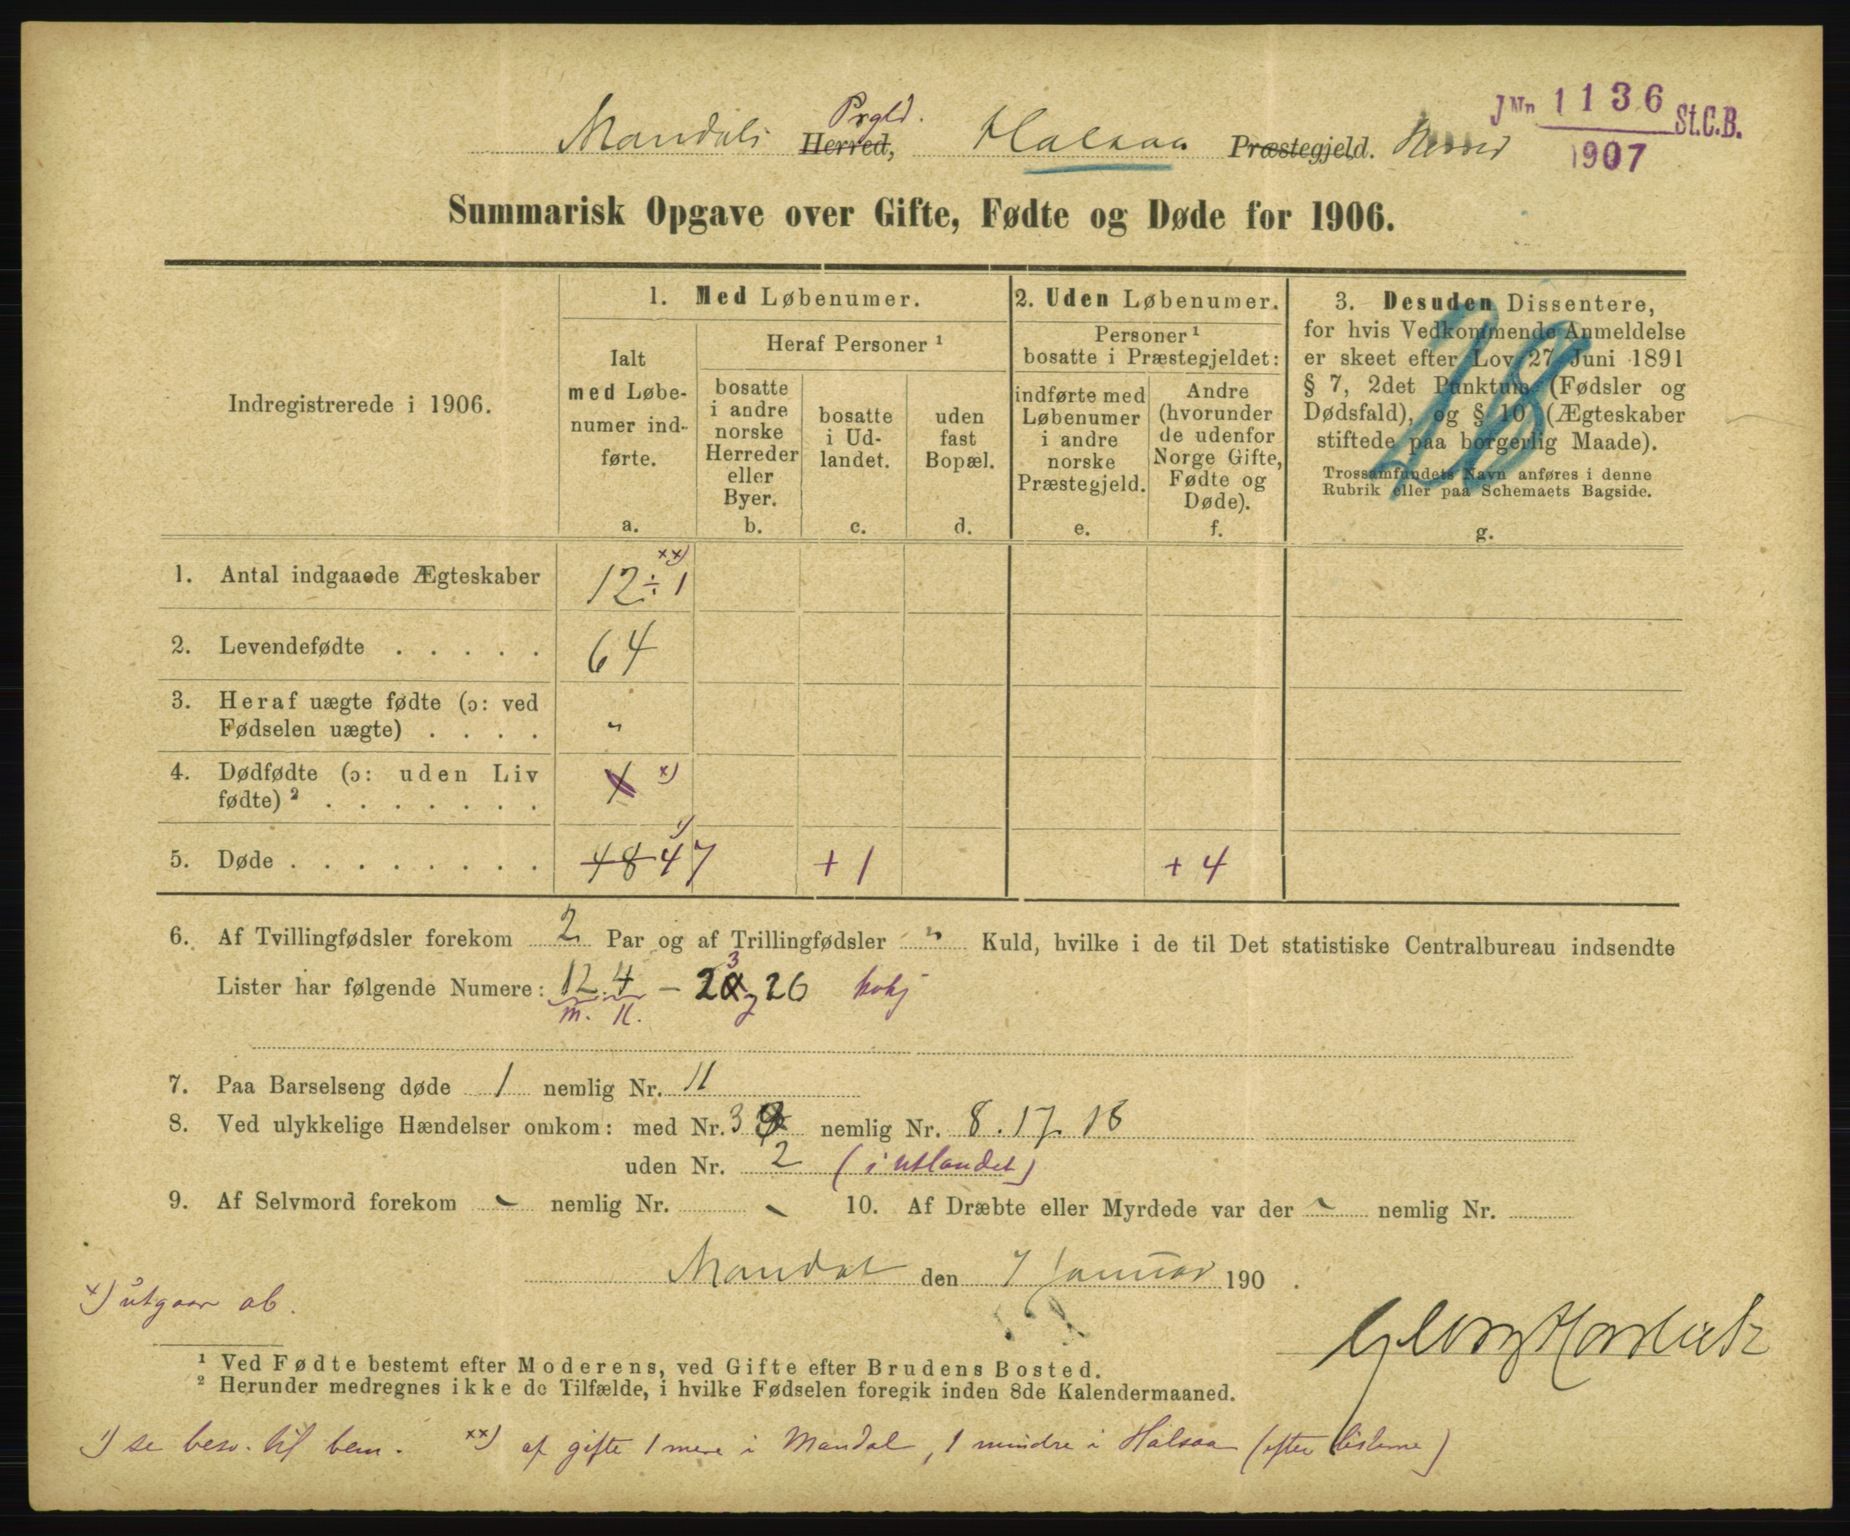 JNr. 1136 St.C.B.
1907
Prgld.
Mandals Herred, Halsaa Præstegjeld. Herred
Summarisk Opgave over Gifte, Fødte og Døde for 1906.
Indregistrerede i 1906.
1. Med Løbenumer.
Ialt
med Løbe-
numer ind-
førte.
a.
Heraf Personer ¹
bosatte
i andre
norske
Herreder
eller
Byer.
b.
bosatte
i Ud-
landet.
c.
uden
fast
Bopæl.
d.
2. Uden Løbenumer.
Personer ¹
bosatte i Præstegjeldet:
indførte med
Løbenumer
i andre
norske
Præstegjeld.
e.
Andre
(hvorunder
de udenfor
Norge Gifte,
Fødte og
Døde).
f.
3. Desuden Dissentere,
for hvis Vedkommende Anmeldelse
er skeet efter Lov 27 Juni 1891
§ 7, 2det Punktum (Fødsler og
Dødsfald), og § 10 (Ægteskaber
stiftede paa borgerlig Maade).
Trossamfundets Navn anføres i denne
Rubrik eller paa Schemaets Bagside.
g.
28
1. Antal indgaaede Ægteskaber 12 ÷ 1 xx)
2. Levendefødte . . . . . 64
3. Heraf uægte fødte (ɔ: ved
Fødselen uægte) . . . . "
4. Dødfødte (ɔ: uden Liv
fødte) ² . . . . . . . 1 x)
5. Døde . . . . . . . . 48 47 ¹) + 1 + 4
6. Af Tvillingfødsler forekom 2 Par og af Trillingfødsler " Kuld, hvilke i de til Det statistiske Centralbureau indsendte
Lister har følgende Numere: 12. 4 — 23, 26
m. k.
7. Paa Barselseng døde 1 nemlig Nr. 11
8. Ved ulykkelige Hændelser omkom: med Nr. 3 nemlig Nr. 8. 17. 18
uden Nr. 2 (i utlandet)
9. Af Selvmord forekom - nemlig Nr. - 10. Af Dræbte eller Myrdede var der - nemlig Nr.
Mandal den 7 Januar 190 .
x) utgaar ab.
¹ Ved Fødte bestemt efter Moderens, ved Gifte efter Brudens Bosted.
² Herunder medregnes ikke de Tilfælde, i hvilke Fødselen foregik inden 8de Kalendermaaned.
¹) se besv. til bem. xx) af gifte 1 mere i Mandal, 1 mindre i Halsaa (efter listerne)